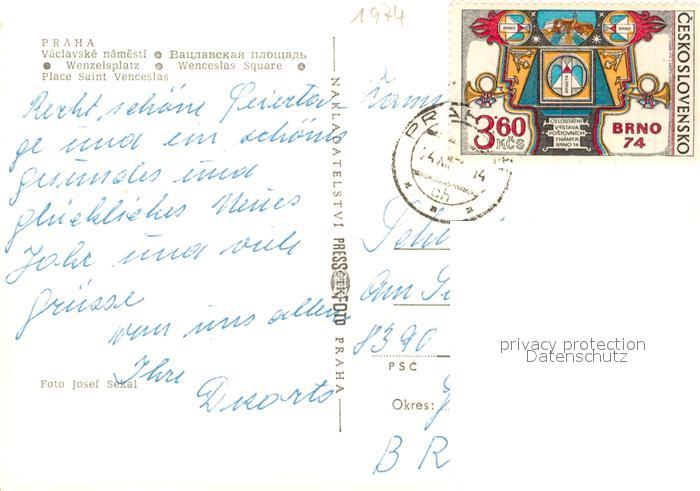 1974
PRAHA
Václavské náměstí ● Вацлавская площадь
● Wenzelsplatz ● Wenceslas Square ●
Place Saint Venceslas
Recht schöne Feierta
ge und ein schönes
gesundes und
glückliches Neues
Jahr und viele
Grüsse
von uns allen
Ihre
Foto Josef Sekal
NAKLADATELSTVÍ PRESSFOTO PRAHA
ČTK
ČESKOSLOVENSKO
3,60
KČS
CELOSTÁTNÍ
VÝSTAVA
POŠTOVNÍCH
ZNÁMEK
BRNO 74
BRNO
74
PRAHA
Am
8390
PSČ
Okres:
BR
privacy protection
Datenschutz